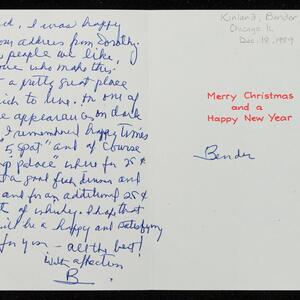 I was happy
address from Dorothy.
people we like
who make this
a pretty great place
which to live. In one of
appearances on dark
I remembered happy times
"5 Spot" and of course
palace" where for 25¢
a good fish dinner and
and for an additional 25¢
of whisky. I hope that
will be a happy and satisfying
for you - all the best!
With affection
B
Kinland, Bender
Chicago IL
Dec. 18, 1989
Merry Christmas
and a
Happy New Year
Bender